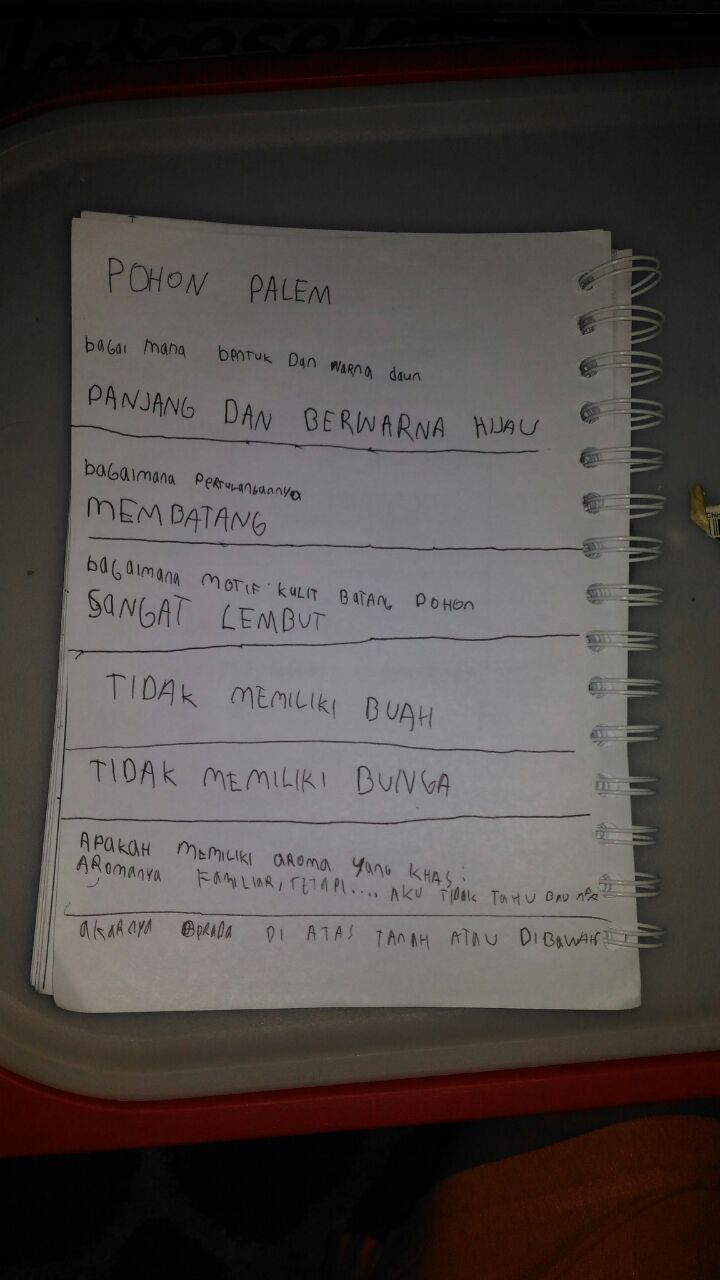 POHON PALEM
bagai mana bentuk Dan warna daun
PANJANG DAN BERWARNA HIJAU
bagaimana Pertulangannya
MEMBATANG
bagaimana MOTIF KULIT BATANG POHON
SANGAT LEMBUT
TIDAK MEMILIKI BUAH
TIDAK MEMILIKI BUNGA
APAKAH MEMILIKI aROMA yang KHAS:
AROMANYA FAMILIAR, TETAPI.... AKU TIDAK TAHU BAU APA
akarnya Berada DI ATAS TANAH ATAU DIBAWAH